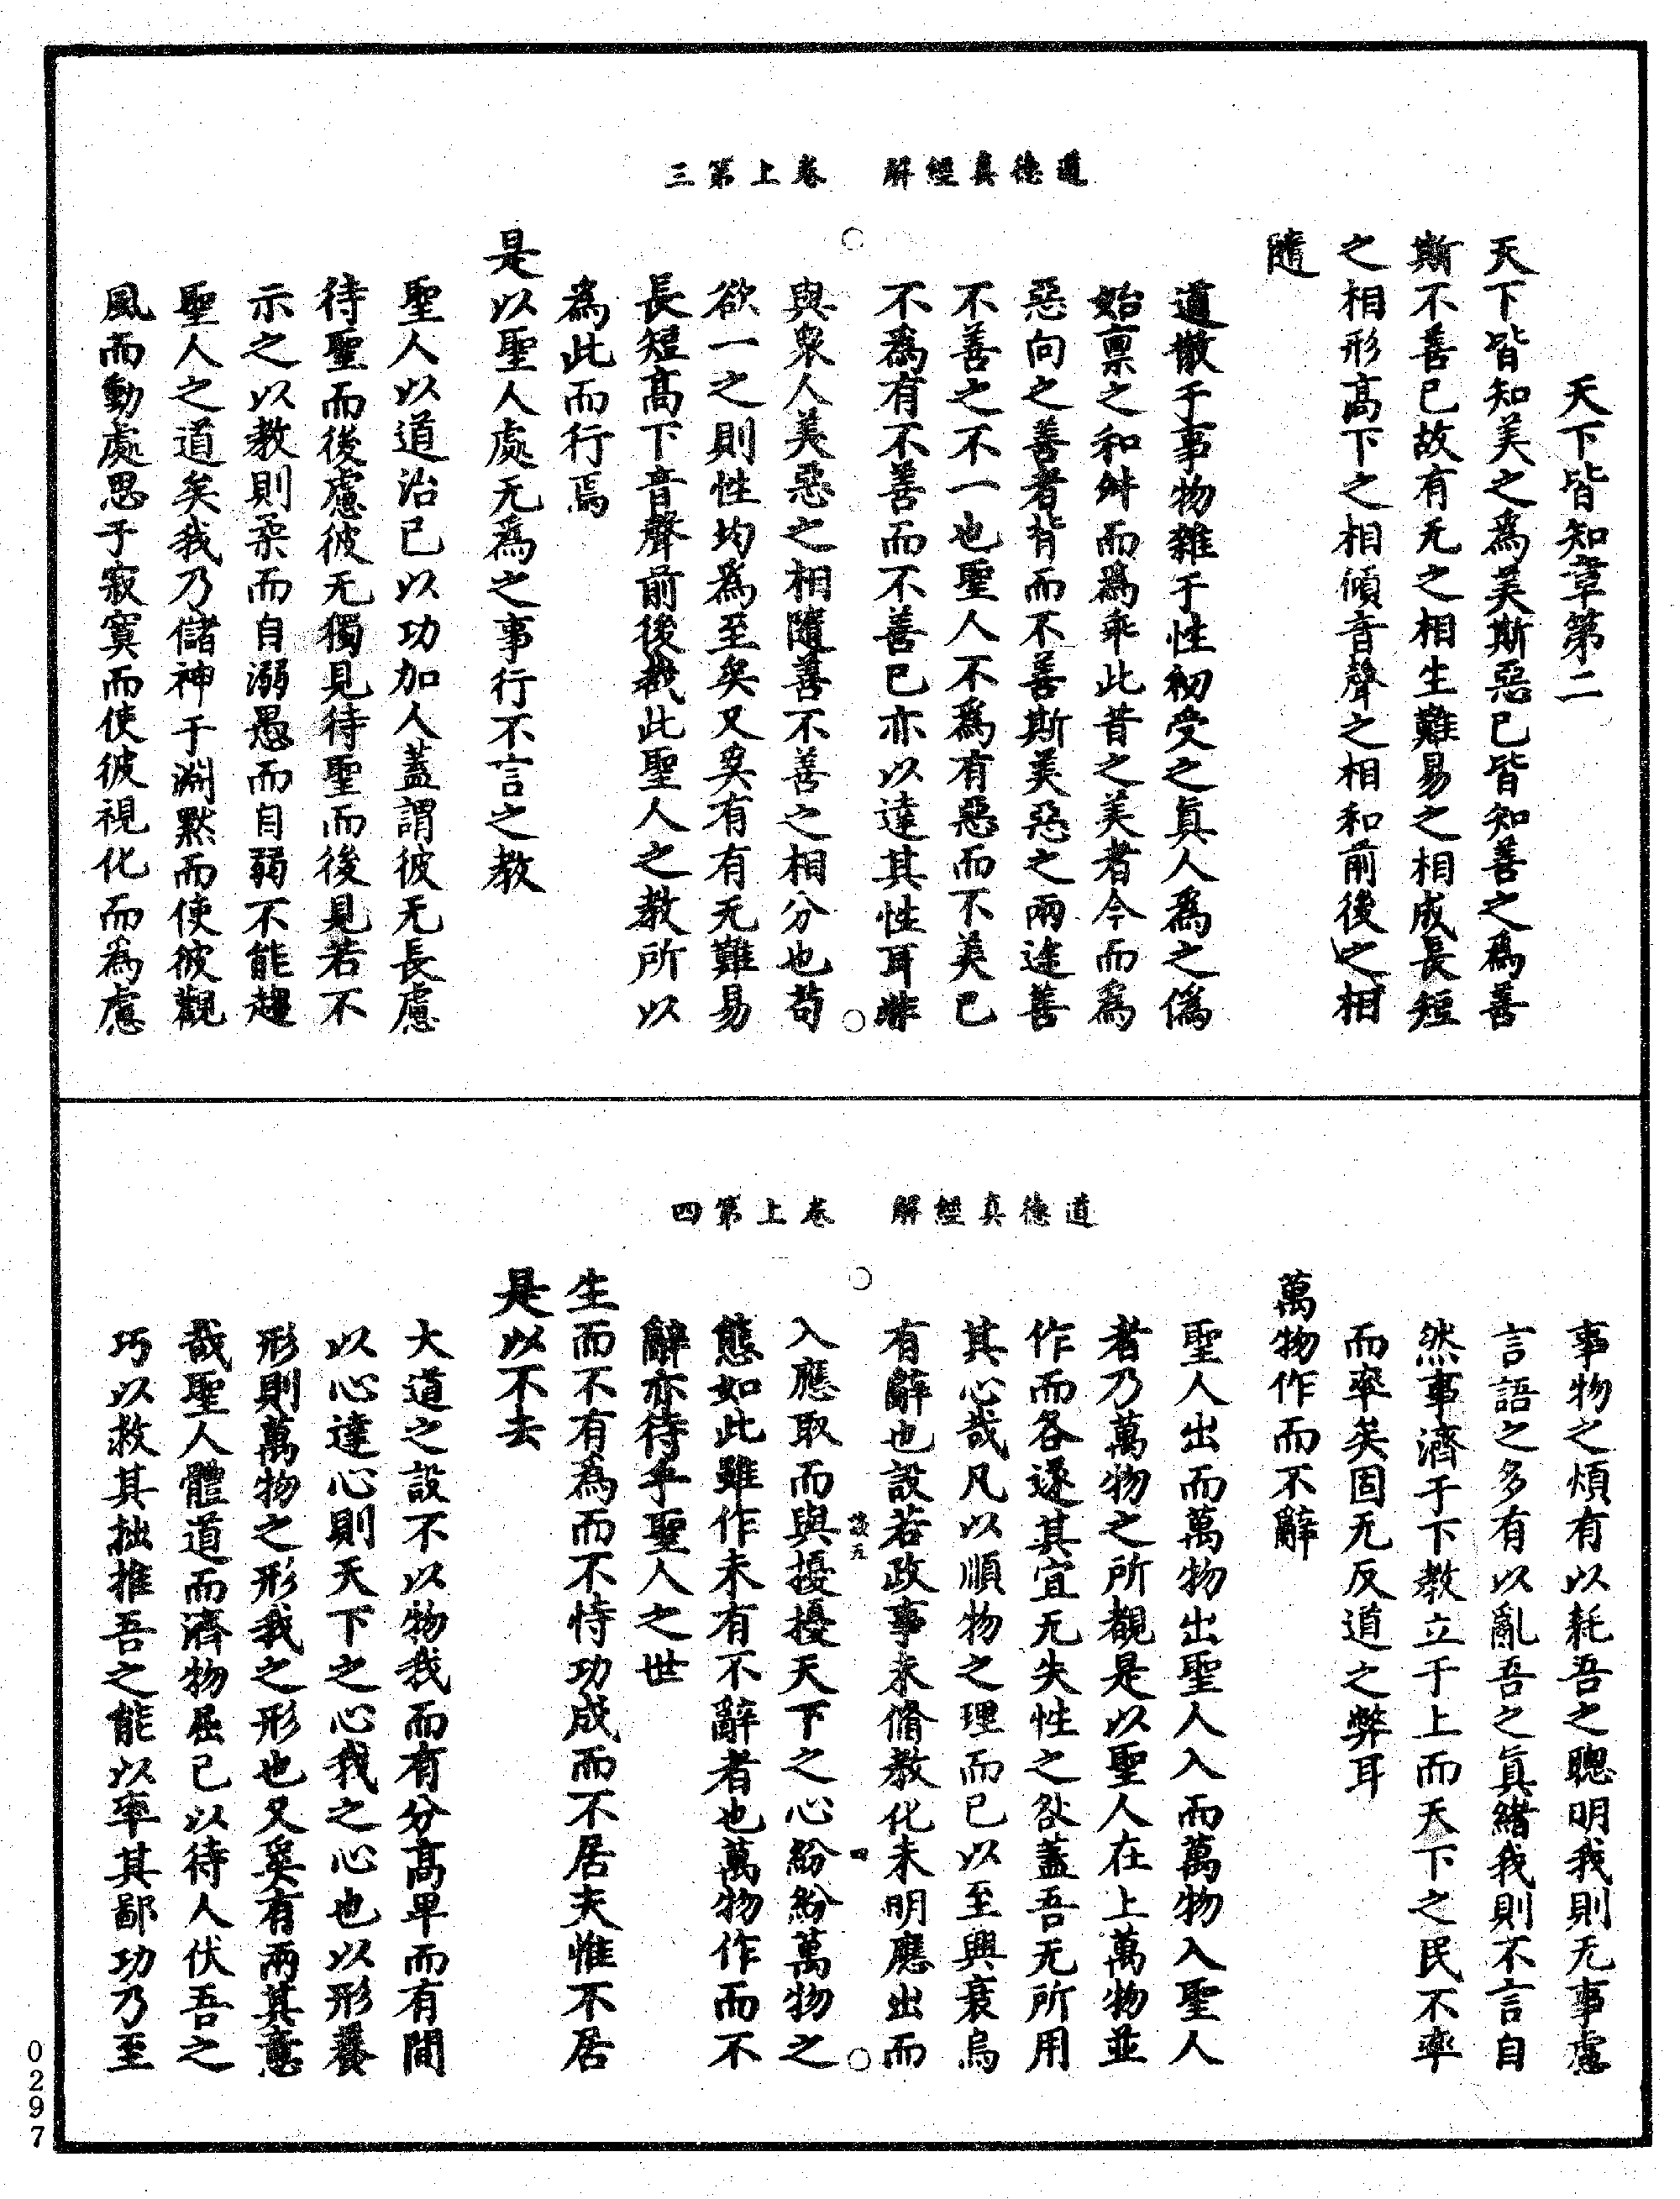 道德真經解　卷上第三
天下皆知章第二
天下皆知美之爲美斯惡已皆知善之爲善
斯不善已故有无之相生難易之相成長短
之相形高下之相傾音聲之相和前後之相
隨
道散于事物雜于性初受之眞人爲之僞
始稟之和舛而爲乖此昔之美者今而爲
惡向之善者背而不善斯美惡之兩途善
不善之不一也聖人不爲有惡而不美已
不爲有不善而不善已亦以達其性耳非
與衆人美惡之相隨善不善之相分也苟
欲一之則性均爲至矣又奚有有无難易
長短高下音聲前後哉此聖人之教所以
為此而行焉
是以聖人處无爲之事行不言之教
聖人以道治已以功加人蓋謂彼无長慮
待聖而後慮彼无獨見待聖而後見若不
示之以教則柔而自溺愚而自弱不能趨
聖人之道矣我乃儲神于淵默而使彼觀
風而動處思于寂寞而使彼視化而為慮
道德真經解　卷上第四
事物之煩有以耗吾之聰明我則无事處
言語之多有以亂吾之眞緒我則不言自
然事濟于下教立于上而天下之民不率
而率矣固无反道之弊耳
萬物作而不辭
聖人出而萬物出聖人入而萬物入聖人
者乃萬物之所覩是以聖人在上萬物並
作而各遂其宜无失性之咎蓋吾无所用
其心哉凡以順物之理而已以至興衰烏
有辭也設若政事未脩教化未明應出而
入應取而與擾擾天下之心紛紛萬物之
談五　四
態如此雖作未有不辭者也萬物作而不
辭亦待乎聖人之世
生而不有為而不恃功成而不居夫惟不居
是以不去
大道之設不以物我而有分高卑而有間
以心達心則天下之心我之心也以形養
形則萬物之形我之形也又奚有兩其意
哉聖人體道而濟物屈已以待人伏吾之
巧以救其拙推吾之能以率其鄙功乃至
0297